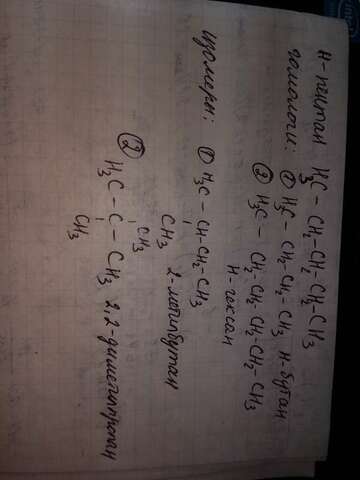 н-пентан H₃C – CH₂-CH₂-CH₂-CH₃
гомологи: ① H₃C – CH₂-CH₂-CH₃ н-бутан
② H₃C – CH₂-CH₂-CH₂-CH₂-CH₃
н-гексан
изомеры: ① H₃C – CH-CH₂-CH₃
CH₃ 2-метилбутан
CH₃
② H₃C – C – CH₃ 2,2-диметилпропан
CH₃